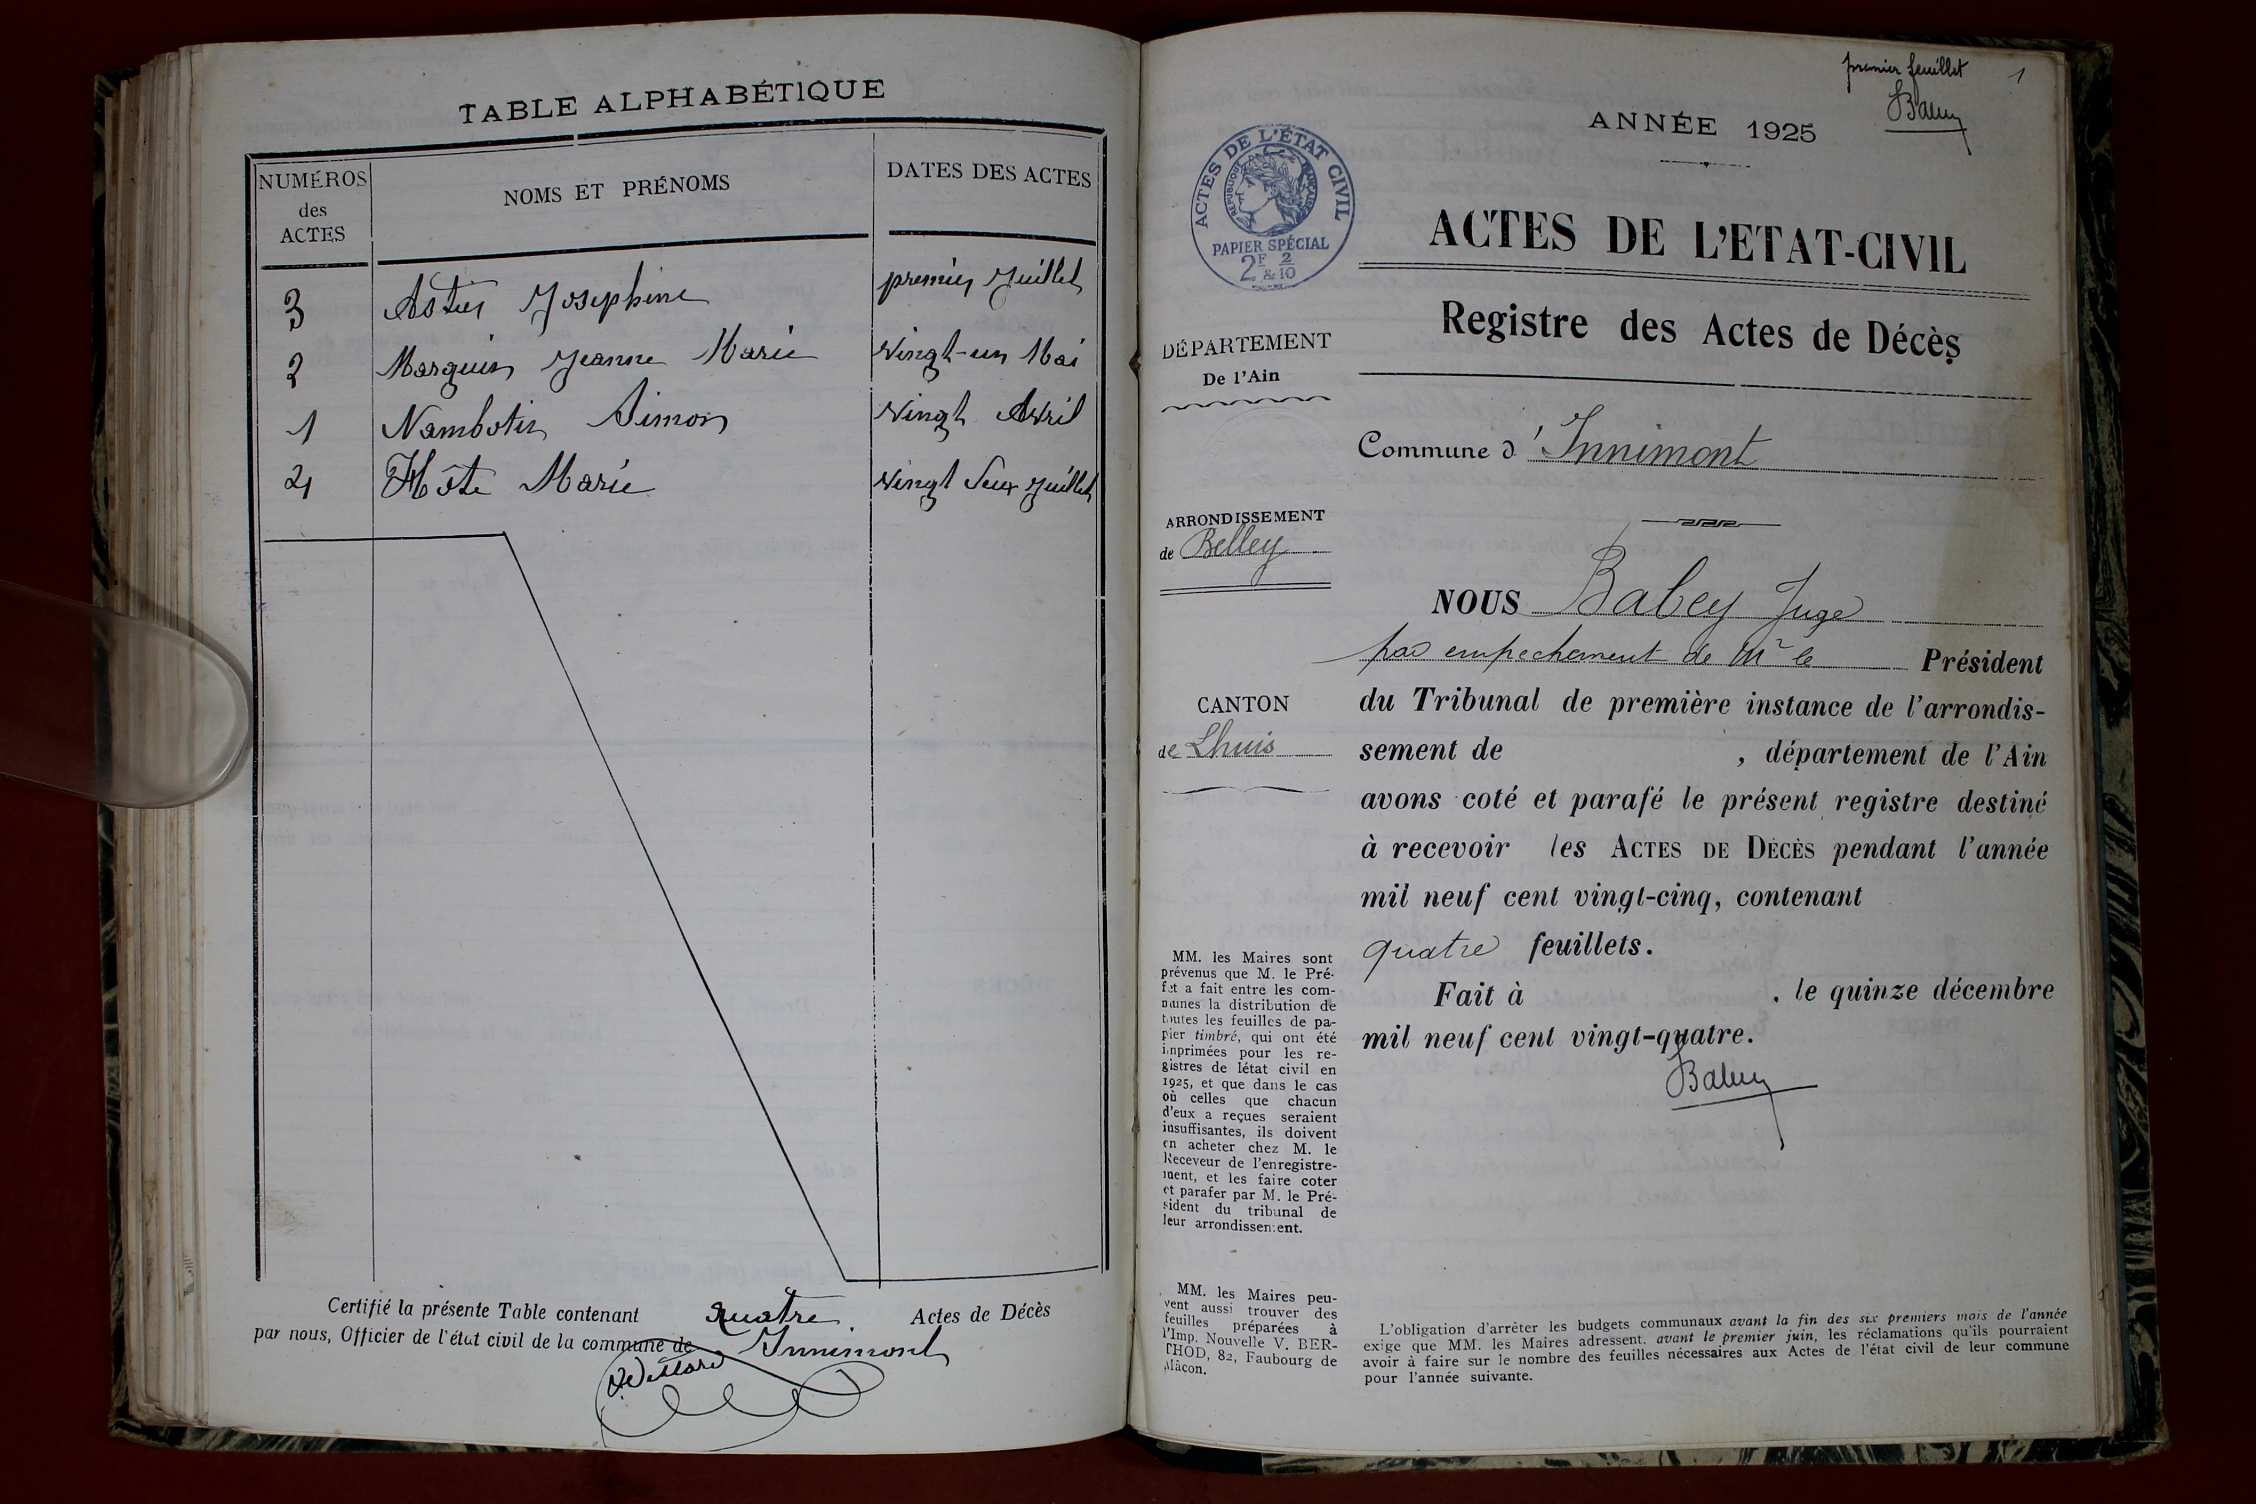 TABLE ALPHABÉTIQUE
NUMÉROS des ACTES
NOMS ET PRÉNOMS
DATES DES ACTES
3 Josephine premier Juillet
2 Marguin Jeanne Marie Vingt-un Mai
1 Nambotin Simon Vingt Avril
4 Hôte Marie Vingt deux Juillet
Certifié la présente Table contenant quatre Actes de Décès
par nous, Officier de l'état civil de la commune de Innimont
premier feuillet 1
Babey
ANNÉE 1925
ACTES DE L'ÉTAT CIVIL
RÉPUBLIQUE FRANÇAISE
PAPIER SPÉCIAL
2F & 2/10
ACTES DE L'ETAT-CIVIL
Registre des Actes de Décès
DÉPARTEMENT
De l'Ain
Commune d'Innimont
ARRONDISSEMENT
de Belley
CANTON
de Lhuis
NOUS Babey Juge
par empechement de Mr le Président
du Tribunal de première instance de l'arrondis-
sement de , département de l'Ain
avons coté et parafé le présent registre destiné
à recevoir les ACTES DE DÉCÈS pendant l'année
mil neuf cent vingt-cinq, contenant
quatre feuillets.
Fait à , le quinze décembre
mil neuf cent vingt-quatre.
Babey
MM. les Maires sont
prévenus que M. le Pré-
fet a fait entre les com-
munes la distribution de
toutes les feuilles de pa-
pier timbré, qui ont été
imprimées pour les re-
gistres de létat civil en
1925, et que dans le cas
où celles que chacun
d'eux a reçues seraient
insuffisantes, ils doivent
en acheter chez M. le
Receveur de l'enregistre-
ment, et les faire coter
et parafer par M. le Pré-
sident du tribunal de
leur arrondissement.
MM. les Maires peu-
vent aussi trouver des
feuilles préparées à
l'Imp. Nouvelle V. BER-
THOD, 82, Faubourg de
Mâcon.
L'obligation d'arrêter les budgets communaux avant la fin des six premiers mois de l'année
exige que MM. les Maires adressent, avant le premier juin, les réclamations qu'ils pourraient
avoir à faire sur le nombre des feuilles nécessaires aux Actes de l'état civil de leur commune
pour l'année suivante.